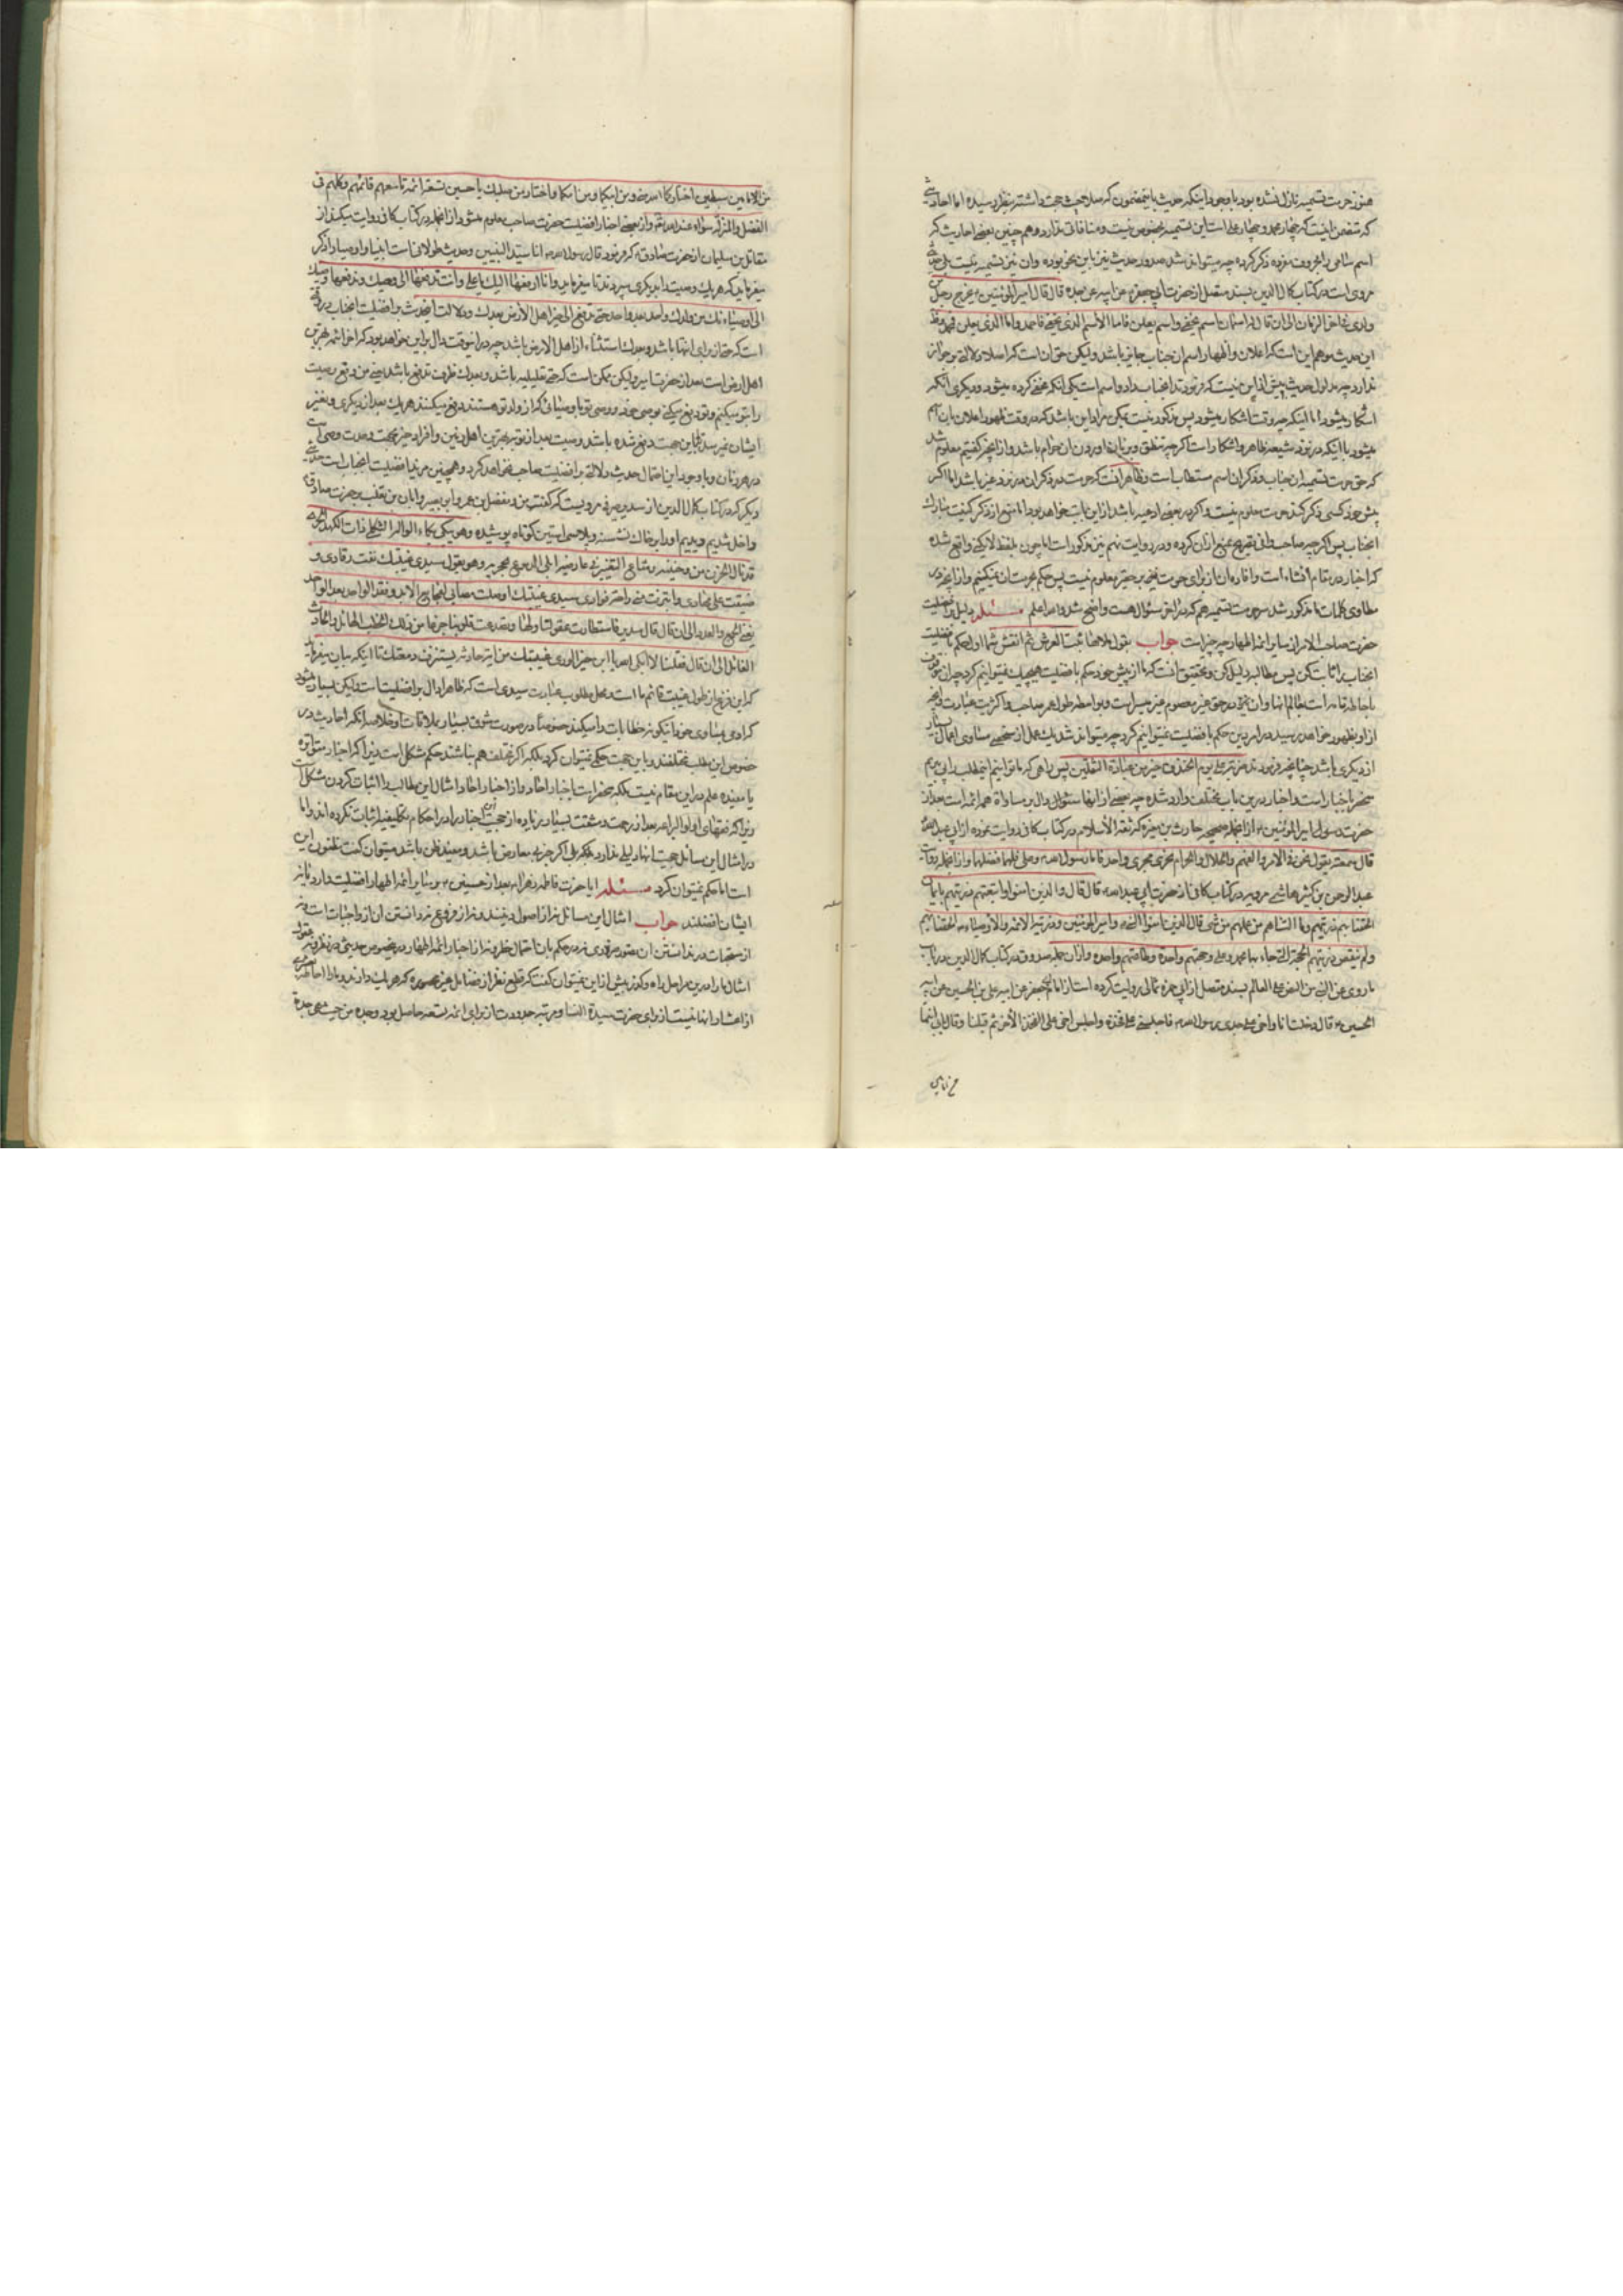 هنوز حرمت تسمیه نازل نشده بود با وجود اینکه حدیث باینمضمون که صلاحیت حجت داشته بنظر نرسیده اما احادیثی
که متضمن اینست که چهار محمد و چهار علی است این تسمیه بخصوص نیست و منافاتی ندارد و هم چنین بعضی احادیث که
اسم سامی را بحروف مفرده ذکر کرده چه میتواند شد صدور حدیث نیز باین نحو بوده و ان نیز تسمیه نیست بلی حدیثی
مروی است در کتاب کمال الدین بسند متصل از حضرت ابی جعفر عن ابیه عن جده قال قال امیر المؤمنین یخرج رجل من
ولدی فی اخر الزمان الی ان قال له اسمان اسم یخفی و اسم یعلن فاما الاسم الذی یخفی فاحمد و اما الذی یعلن فمحمد
این حدیث موهم این است که اعلان و اظهار اسم ان جناب جایز باشد و لیکن حق ان است که اصلا دلالتی بر جواز
ندارد چه مدلول حدیث بیش از این نیست که فرمودند انجناب را دو اسم است یکی انکه مخفی کرده میشود و دیگری انکه
اشکار میشود اما اینکه چه وقت اشکار میشود پس مذکور نیست یمکن مراد این باشد که در وقت ظهور اعلان بان اسم
میشود با اینکه در نزد شیعه ظاهر و اشکار است اگرچه تنطق و بر زبان اوردن ان حرام باشد و از انچه گفتیم معلوم شد
که حق حرمت تسمیه ان جناب و ذکر ان اسم مستطاب است و ظاهر انست که حرمت در ذکر ان در نزد غیر باشد اما اگر
پیش خود کسی ذکر کند حرمت معلوم نیست و اگر در بعضی ادعیه باشد از این بابت خواهد بود اما منع از ذکر کنیت مبارک
انجناب پس اگرچه صاحب وافی تصریح بمنع از ان کرده و در روایت نهم نیز مذکور است اما چون بلفظ لا یکنی واقع شده
که اخبار در مقام انشاء است و افاده ان از برای حرمت معلوم نیست پس حکم بحرمت ان نمیکنیم و از انچه در
مطاوی کلمات مذکور شد سر حرمت تسمیه هم که در اخر سؤال هست واضح شد و الله اعلم مسئله دلیل بر افضلیت
حضرت صاحب الامر از سایر ائمه اطهار چه چیز است جواب بقول ملاها ثبت العرش ثم انقش شما اول حکم بافضلیت
انجناب را ثابت کن پس مطالبه دلیل کن و تحقیق انست که ما از پیش خود حکم بافضلیت هیچیک نمیتوانیم کرد چه ان موقوف
از دیگری باشد چنانچه فرمودند ضربة علی یوم الخندق خیر من عبادة الثقلین پس راهی که ما توانیم اینمطلب را پی بریم
منحصر باخبار است و اخبار در این باب مختلف وارد شده چه بعضی از انها سئوال دال بر مساوات همه ائمه است بعد از
حضرت رسول و امیر المؤمنین از انجمله صحیحه حارث بن مغیره که ثقة الاسلام در کتاب کافی روایت نموده از ابی عبد الله
قال سمعته یقول نحن فی الامر و الفهم و الحلال و الحرام نجری مجری واحد فاما رسول الله و علی فلهما فضلهما و از انجمله روایت
عبد الرحمن بن کثیر هاشمی مرویه در کتاب کافی از حضرت ابی عبد الله قال قال و الذین امنوا و اتبعتهم ذریتهم بایمان
الحقنا بهم ذریتهم و ما التناهم من عملهم من شیء قال الذین امنوا النبی و امیر المؤمنین و ذریته الائمه و الاوصیاء الحقنا بهم
ولم ننقص ذریتهم الحجة التی جاء بها محمد و علی و حجتهم واحدة و طاعتهم واحدة و از ان جمله صدوق در کتاب کمال الدین در باب
ما روی عن النبی من النص علی القائم بسند متصل از ابی حمزه ثمالی روایت کرده است از امام ابی جعفر عن ابیه علی بن الحسین عن ابیه
الحسین قال دخلت انا و اخی علی جدی رسول الله فاجلسنی علی فخذه و اجلس اخی علی الفخذ الاخر ثم قبلنا و قال بابی انتما
من امامین سبطین اختارکما الله منی و من ابیکما و من امکما و اختار من صلبک یا حسین تسعة ائمه تاسعهم قائمهم و کلهم فی
الفضل و المنزلة سواء عند الله تع و از بعضی اخبار افضلیت حضرت صاحب معلوم میشود از انجمله در کتاب کافی روایت میکند از
مقاتل بن سلیمان از حضرت صادق که فرمود قال رسول الله انا سید النبیین و حدیث طولانی است انبیا و اوصیا را ذکر
میفرماید که هر یک وصیت را بدیگری سپردند تا میفرماید و انا ادفعها الیک یا علی و انت تدفعها الی وصیک و یدفعها وصیک
الی اوصیائک من ولدک واحد بعد واحد حتی تدفع الی خیر اهل الارض بعدک و دلالت اینحدیث بر افضلیت انجناب در وقتی
است که حتی از برای انتها باشد و بعدک استثناء از اهل الارض باشد چه در اینوقت دال بر این خواهد بود که اخر ائمه بهترین
اهل ارض است بعد از حضرت امیر و لیکن ممکن است که حتی تعلیلیه باشد و بعدک ظرف تدفع باشد یعنی من دفع وصیت
را بتو میکنم و تو دفع میکنی بوصی خود و وصی تو باوصیائی که از ولد تو هستند دفع میکنند هر یک بعد از دیگری و بغیر
در هر زمان و با وجود این احتمال حدیث دلالتی بر افضلیت صاحب نخواهد کرد و همچنین مؤید افضلیت انجناب است حدیثی
دیگر که در کتاب کمال الدین از سدیر صیرفی مرویست که گفت من و مفضل بن عمر و ابو بصیر و ابان بن تغلب بر حضرت صادق
داخل شدیم و دیدیم او را بر خاک نشسته و پلاسی استین کوتاه پوشیده و هو یبکی بکاء الواله الثکلی ذات الکبد الحری
قد نال الحزن من وجنتیه و شاع التغییر فی عارضیه و ابلی الدموع محجریه و هو یقول سیدی غیبتک نفت رقادی و
ضیقت علی مهادی و ابتزت منی راحة فؤادی سیدی غیبتک اوصلت مصابی بفجایع الابد و فقد الواحد بعد الواحد
یفنی الجمع و العدد الی ان قال قال سدیر فاستطارت عقولنا ولها و تصدعت قلوبنا جزعا من ذلک الخطب الهائل و الحادث
الغائل الی ان قال فقلنا لا ابکی الله یا ابن خیر الوری عینیک من ایة حادثه یستنزف دمعتک تا اینکه بیان میفرماید
که این جزع از طول غیبت قائم ما است و محل مطلوب عبارت سیدی است که ظاهرا دال بر افضلیت است و لیکن بسیار میشود
که ادمی مساوی خود را نیز خطابات را میکند خصوصا در صورت شوق بسیار بملاقات و خلاصه انکه احادیث در
خصوص این مطلب مختلفند و باین جهت حکمی نمیتوان کرد بلکه اگر مختلف هم نباشند حکم مشکل است زیرا که اخبار متواتره
یا مفیده علم در این مقام نیست بلکه منحصر است باخبار احاد و از اخبار احاد امثال این مطالب را اثبات کردن مشکل است
در امثال این مسائل حجیت انها دلیلی ندارد بلکه بلی اگر خبر بی معارض باشد و مفید ظن باشد میتوان گفت مظنون این
است اما حکم نمیتوان کرد مسئله ایا حضرت فاطمه زهرا بعد از حسنین بر سایر ائمه اطهار افضلیت دارد یا نه
ایشان افضلند جواب امثال این مسائل نه از اصول دینند و نه از فروع نه دانستن ان از واجبات است و نه
اشال ما را در این مراحل راه و گذر بیش از این نمیتوان گفت که قطع نظر از فضایل غیر محصوره که هر یک دارند و ما را احاطه